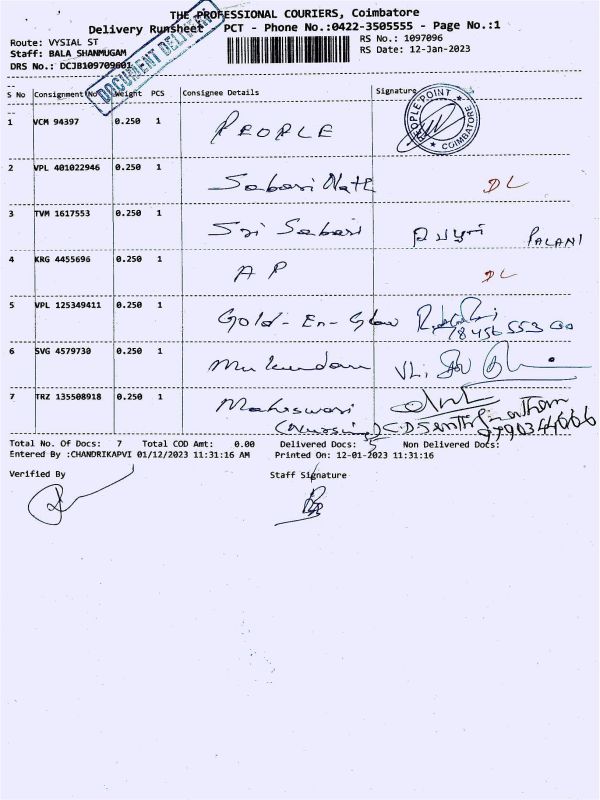 THE PROFESSIONAL COURIERS, Coimbatore
Delivery Runsheet PCT - Phone No.:0422-3505555 - Page No.:1
Route: VYSIAL ST
RS No.: 1097096
Staff: BALA SHANMUGAM
RS Date: 12-Jan-2023
DRS No.: DCJB109709601
DOCUMENT DELIVERY
S No Consignment No Weight PCS Consignee Details Signature
1 VCM 94397 0.250 1 PEOPLE
PEOPLE POINT
COIMBATORE
2 VPL 401022946 0.250 1 Sabari Nath DL
3 TVM 1617553 0.250 1 Sri Sabari PALANI
4 KRG 4455696 0.250 1 A P DL
5 VPL 125349411 0.250 1 Gold-En-Glow
6 SVG 4579730 0.250 1 Mukundan
7 TRZ 135508918 0.250 1 Maheswari
(Nursing)
Total No. Of Docs: 7 Total COD Amt: 0.00 Delivered Docs: 5 Non Delivered Docs:
Entered By :CHANDRIKAPVI 01/12/2023 11:31:16 AM Printed On: 12-01-2023 11:31:16
Verified By Staff Signature